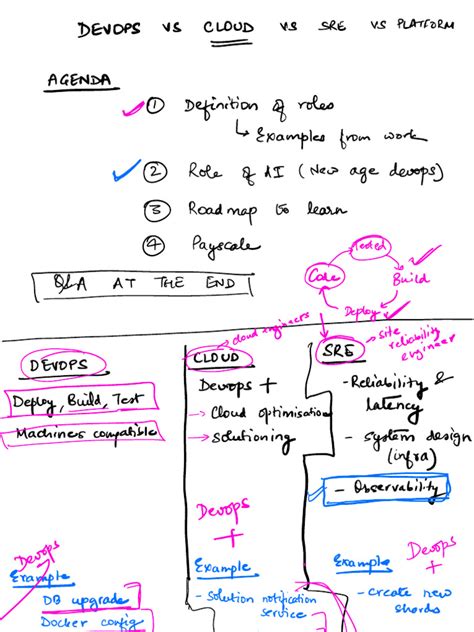 DEVOPS vs CLOUD vs SRE vs PLATFORM
AGENDA
① Definition of roles
↳ Examples from work
② Role of AI (New age devops)
③ Roadmap to learn
④ Payscale
Q&A AT THE END
Tested
Code
Build
Deploy
cloud engineers
site reliability engineer
DEVOPS
Deploy, Build, Test
Machines compatible
Devops
Example
DB upgrade
Docker config
CLOUD
Devops +
→ Cloud optimisation
→ solutioning
Devops
+
Example
- solution notification
service
SRE
- Reliability &
latency
- system design
(infra)
- Observability
Devops
+
Example
- Create new
shards